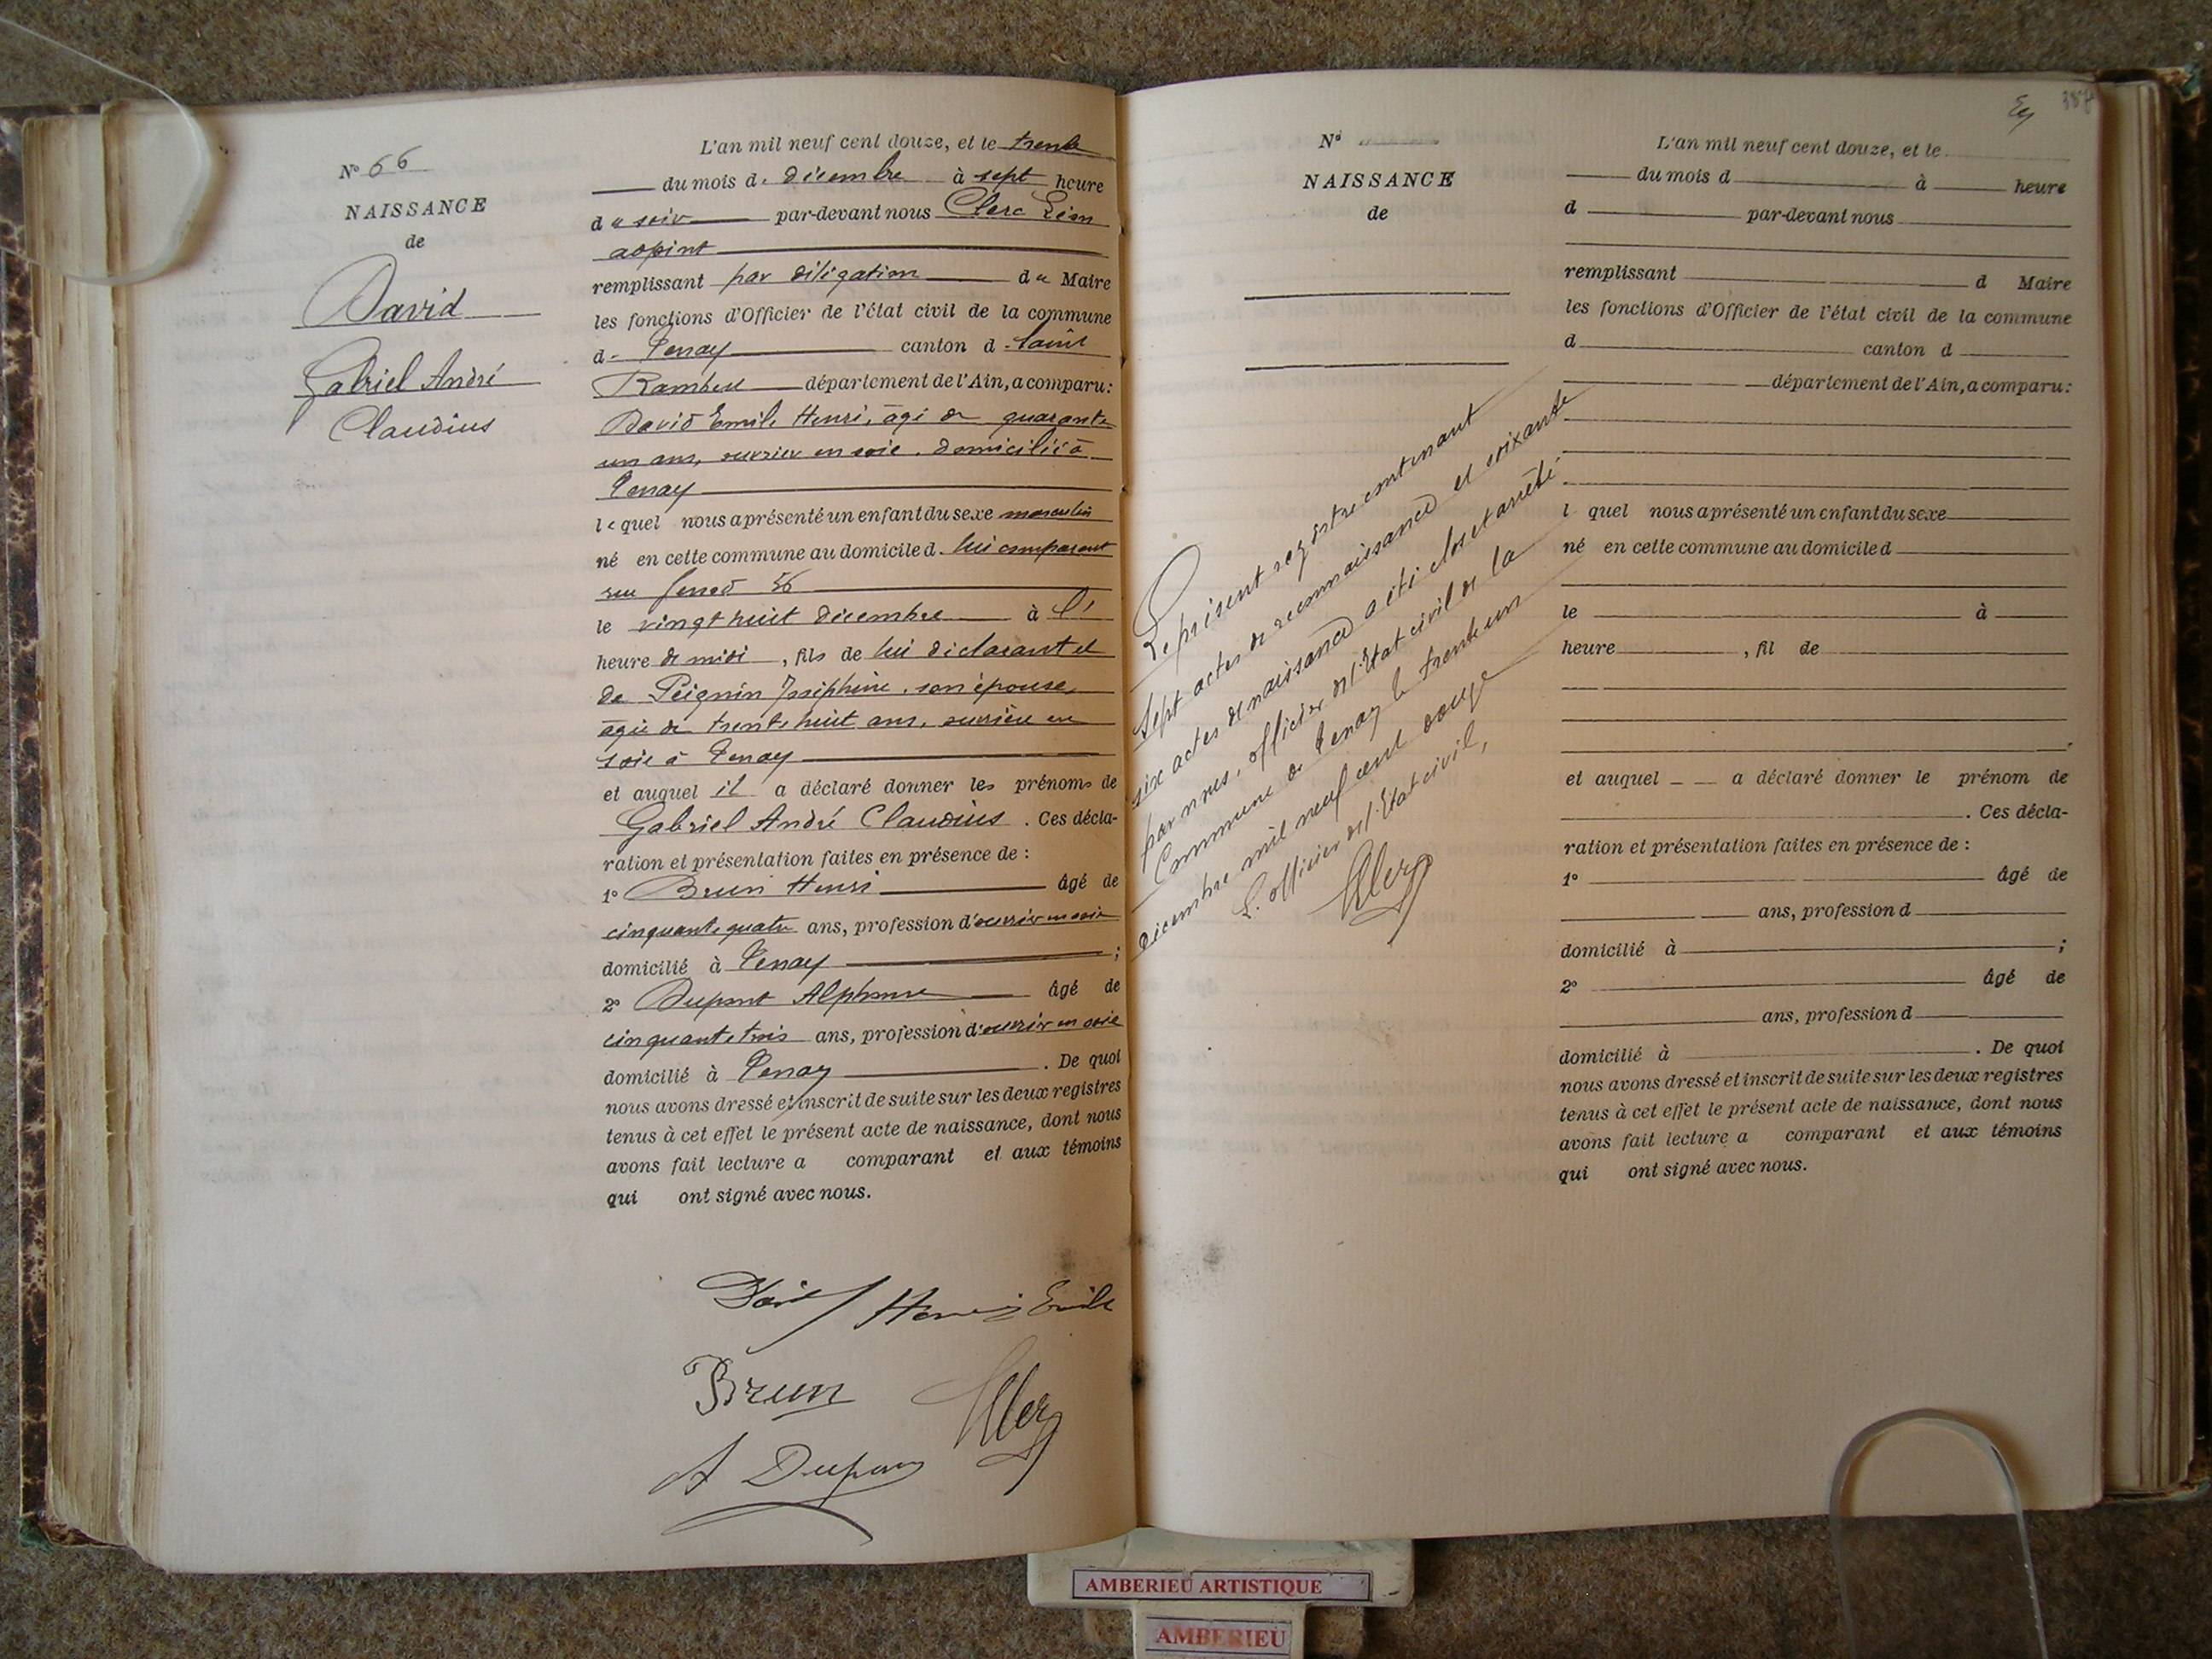 N° 66
NAISSANCE
de
David
Gabriel André
Claudius
L'an mil neuf cent douze, et le trente
du mois de décembre à sept heure
du soir par-devant nous Clerc Léon
adjoint
remplissant par délégation du Maire
les fonctions d'Officier de l'état civil de la commune
de Tenay canton de Saint
Rambert département de l'Ain, a comparu:
David Emile Henri, âgé de quarante
un ans, ouvrier en soie, domicilié à
Tenay
lequel nous a présenté un enfant du sexe masculin
né en cette commune au domicile de lui comparant
rue 56
le vingt huit décembre à l'
heure de midi, fils de lui déclarant et
de Peignin Joséphine, son épouse,
âgée de trente huit ans, ouvrière en
soie à Tenay
et auquel il a déclaré donner les prénoms de
Gabriel André Claudius. Ces décla-
ration et présentation faites en présence de :
1° Brun Henri âgé de
cinquante quatre ans, profession d'ouvrier en soie
domicilié à Tenay ;
2° Dupont Alphonse âgé de
cinquante trois ans, profession d'ouvrier en soie
domicilié à Tenay. De quoi
nous avons dressé et inscrit de suite sur les deux registres
tenus à cet effet le présent acte de naissance, dont nous
avons fait lecture a comparant et aux témoins
qui ont signé avec nous.
David Henri Emile
Brun Clerc
A Dupont
N°
NAISSANCE
de
Le présent registre contenant
sept actes de reconnaissance et soixante
six actes de naissance a été clos et arrêté
par nous, officier de l'Etat civil de la
Commune de Tenay le trente un
décembre mil neuf cent douze
L'officier de l'Etat civil,
Clerc
387
L'an mil neuf cent douze, et le
du mois d à heure
d par-devant nous
remplissant d Maire
les fonctions d'Officier de l'état civil de la commune
d canton d
département de l'Ain, a comparu:
l quel nous a présenté un enfant du sexe
né en cette commune au domicile d
le à
heure , fil de
et auquel a déclaré donner le prénom de
. Ces décla-
ration et présentation faites en présence de :
1° âgé de
ans, profession d
domicilié à ;
2° âgé de
ans, profession d
domicilié à . De quoi
nous avons dressé et inscrit de suite sur les deux registres
tenus à cet effet le présent acte de naissance, dont nous
avons fait lecture a comparant et aux témoins
qui ont signé avec nous.
AMBERIEU ARTISTIQUE
AMBERIEU